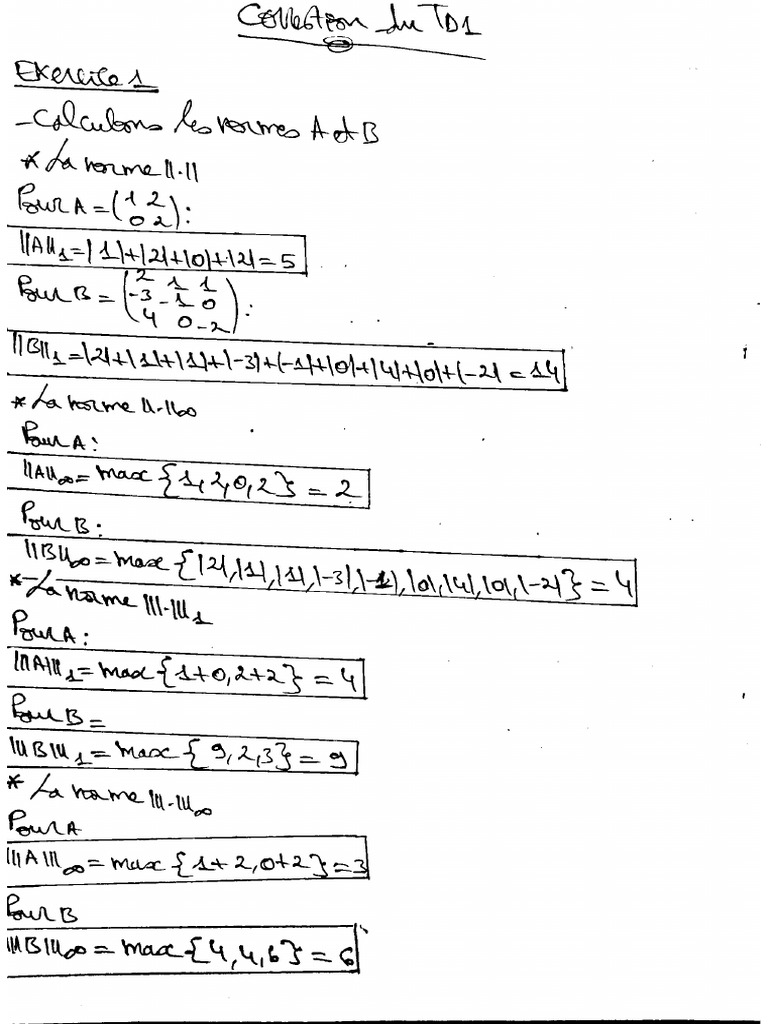 Correction du TD1
Exercice 1
- Calculons les normes A et B
* La norme ||.||
Pour A = (1 2
0 2) :
||A||₁ = |1|+|2|+|0|+|2| = 5
Pour B = (2 1 1
-3 -1 0
4 0 -2) :
||B||₁ = |2|+|1|+|1|+|-3|+|-1|+|0|+|4|+|0|+|-2| = 14
* La norme ||.||∞
Pour A :
||A||∞ = max {1, 2, 0, 2} = 2
Pour B :
||B||∞ = max {|2|, |1|, |1|, |-3|, |-1|, |0|, |4|, |0|, |-2|} = 4
* La norme |||.|||₁
Pour A :
|||A|||₁ = max {1+0, 2+2} = 4
Pour B =
|||B|||₁ = max {9, 2, 3} = 9
* La norme |||.|||∞
Pour A
|||A|||∞ = max {1+2, 0+2} = 3
Pour B
|||B|||∞ = max {4, 4, 6} = 6